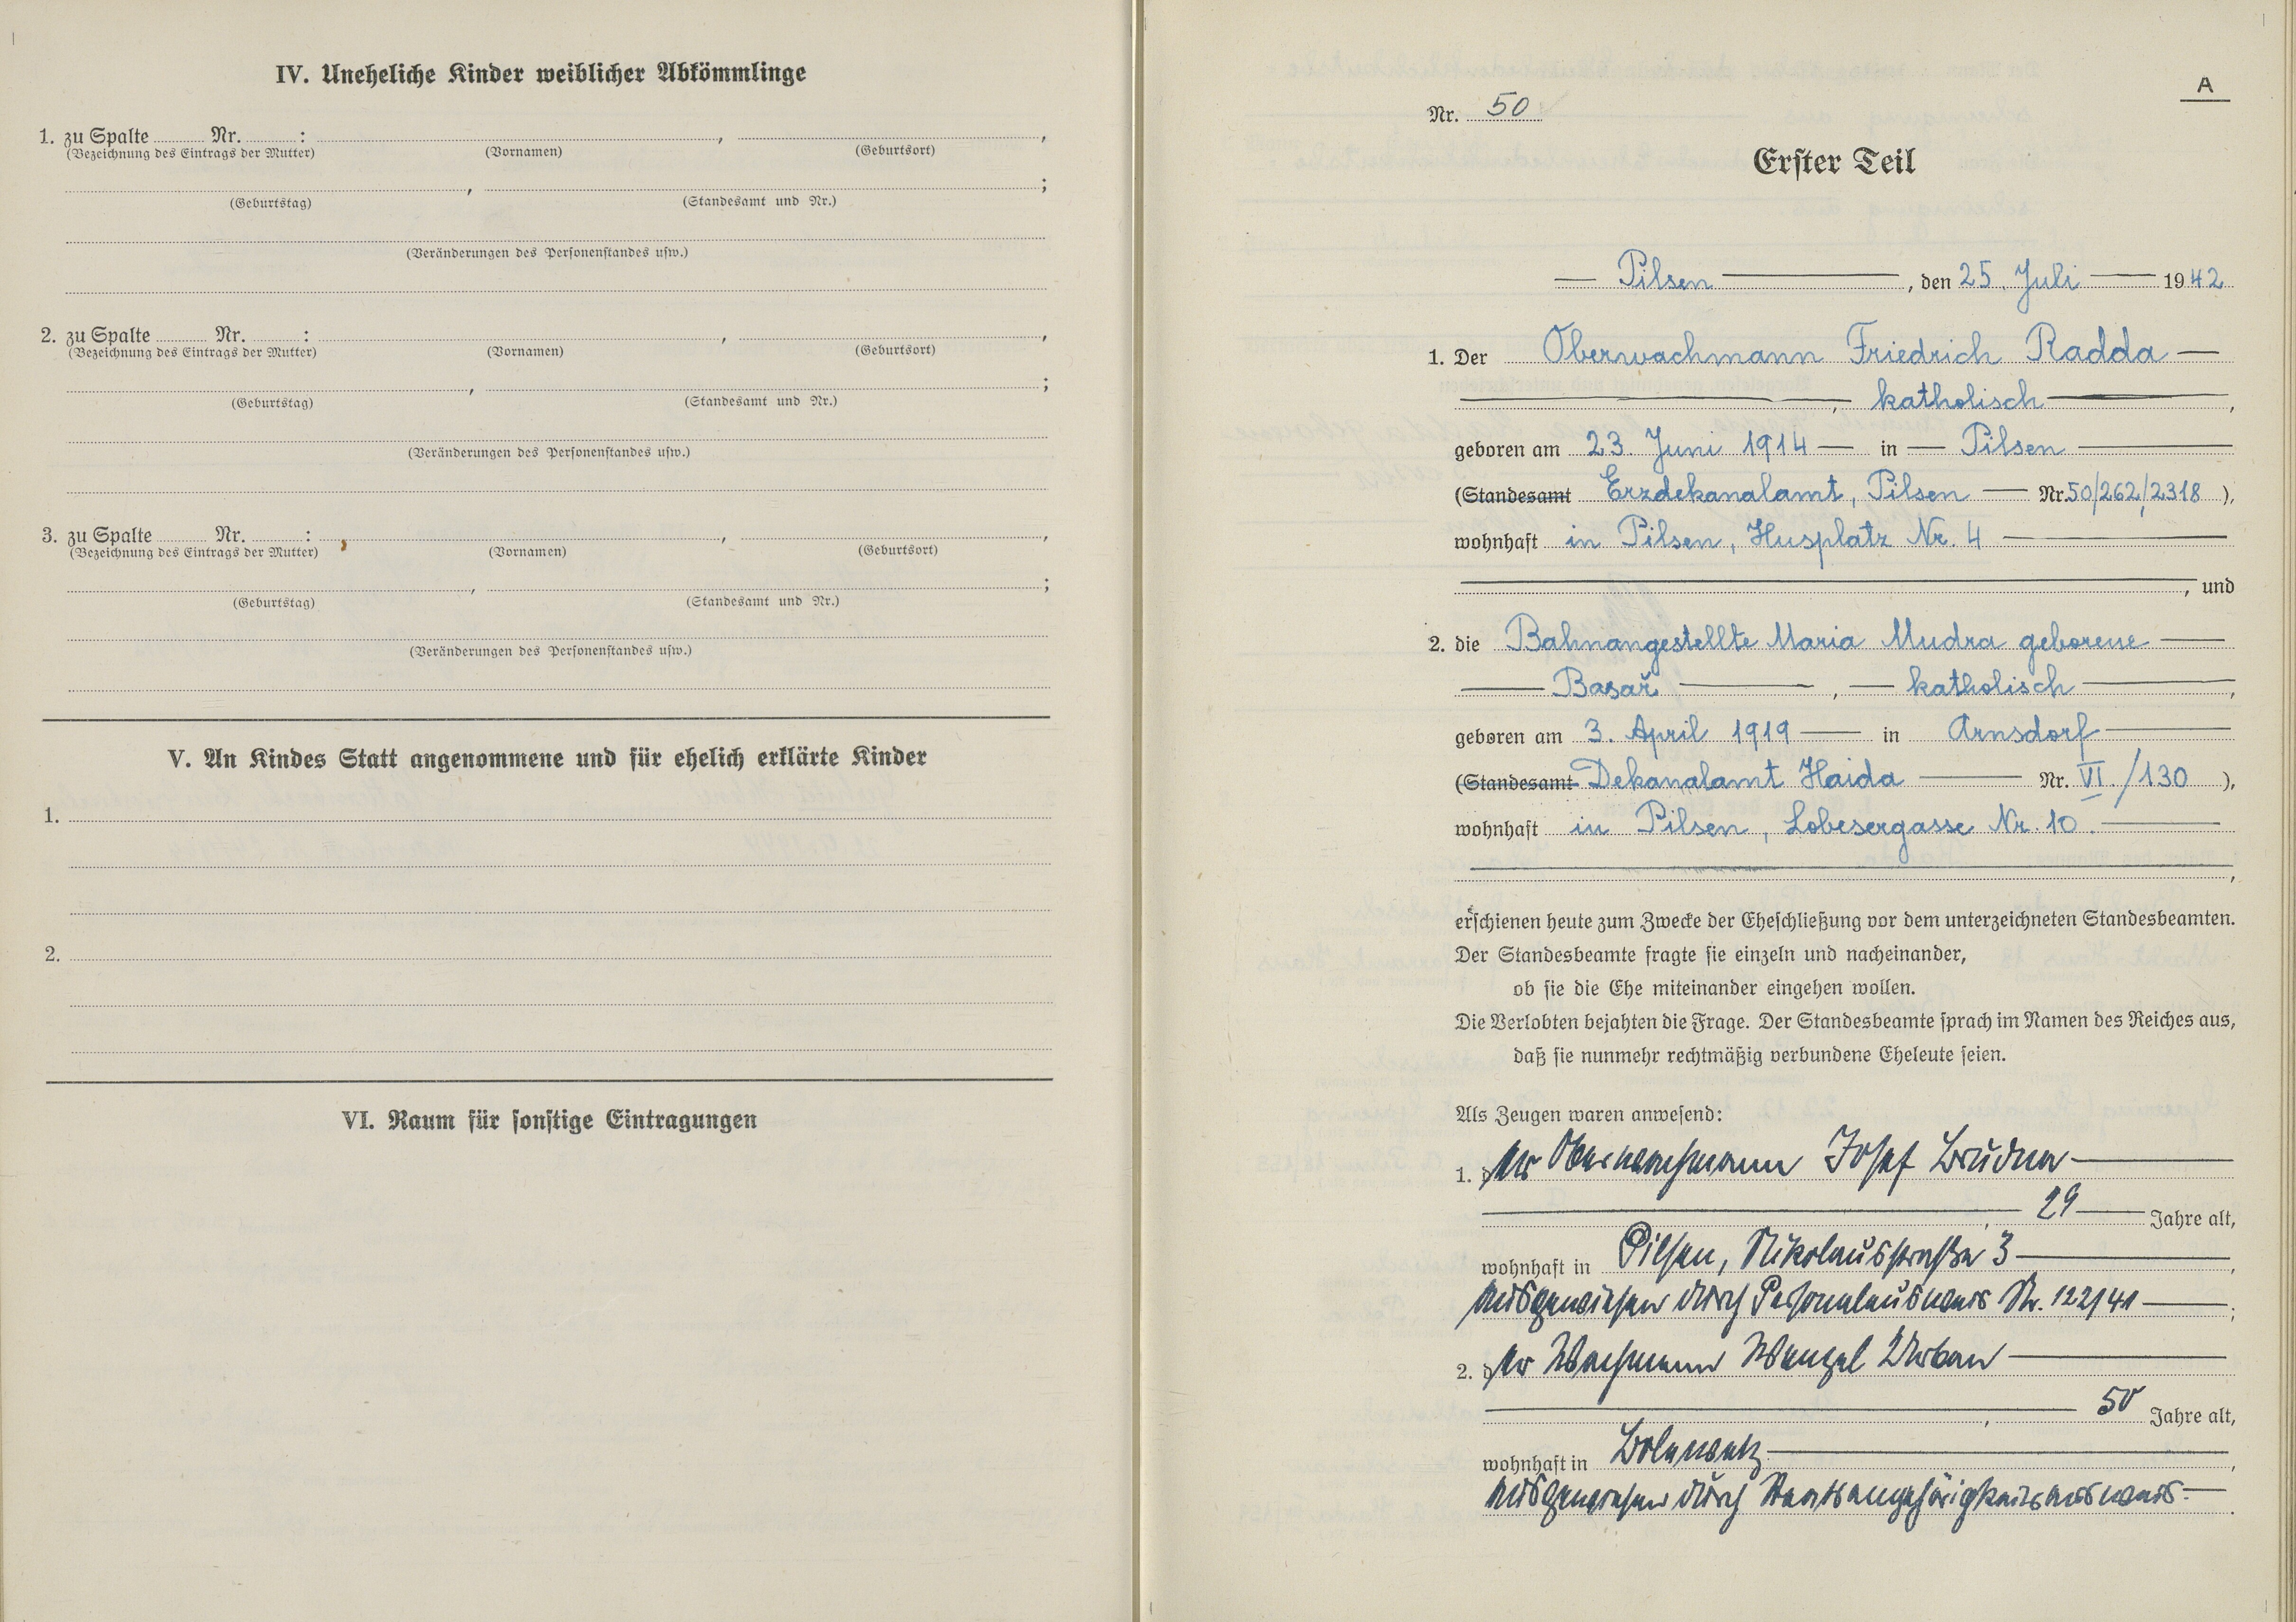 IV. Uneheliche Kinder weiblicher Abkömmlinge
1. zu Spalte ........ Nr. ........ : ........ , ........ ,
(Bezeichnung des Eintrags der Mutter) (Vornamen) (Geburtsort)
........ , ........ ;
(Geburtstag) (Standesamt und Nr.)
(Veränderungen des Personenstandes usw.)
2. zu Spalte ........ Nr. ........ : ........ , ........ ,
(Bezeichnung des Eintrags der Mutter) (Vornamen) (Geburtsort)
........ , ........ ;
(Geburtstag) (Standesamt und Nr.)
(Veränderungen des Personenstandes usw.)
3. zu Spalte ........ Nr. ........ : ........ , ........ ,
(Bezeichnung des Eintrags der Mutter) (Vornamen) (Geburtsort)
........ , ........ ;
(Geburtstag) (Standesamt und Nr.)
(Veränderungen des Personenstandes usw.)
V. An Kindes Statt angenommene und für ehelich erklärte Kinder
1.
2.
VI. Raum für sonstige Eintragungen
A
Nr. 50
Erster Teil
— Pilsen — , den 25. Juli — 1942
1. Der Oberwachmann Friedrich Radda —
— , katholisch — ,
geboren am 23. Juni 1914 — in — Pilsen —
(Standesamt Erzdekanalamt, Pilsen — Nr. 50/262/2318 ),
wohnhaft in Pilsen, Husplatz Nr. 4 —
— , und
2. die Bahnangestellte Maria Mudra geborene —
— Basař — , — katholisch — ,
geboren am 3. April 1919 — in Arnsdorf —
(Standesamt Dekanalamt Haida — Nr. VI./130 ),
wohnhaft in Pilsen, Lobesergasse Nr. 10. —
— ,
erschienen heute zum Zwecke der Eheschließung vor dem unterzeichneten Standesbeamten.
Der Standesbeamte fragte sie einzeln und nacheinander,
ob sie die Ehe miteinander eingehen wollen.
Die Verlobten bejahten die Frage. Der Standesbeamte sprach im Namen des Reiches aus,
daß sie nunmehr rechtmäßig verbundene Eheleute seien.
Als Zeugen waren anwesend:
1. der Oberwachmann Josef —
— , 29 — Jahre alt,
wohnhaft in Pilsen, Nikolausstraße 3 — ,
ausgewiesen durch Personalausweis Nr. 122/41 — ;
2. der Wachmann Wenzel Urban —
— , 50 Jahre alt,
wohnhaft in — ,
ausgewiesen durch Staatsangehörigkeitsausweis. —